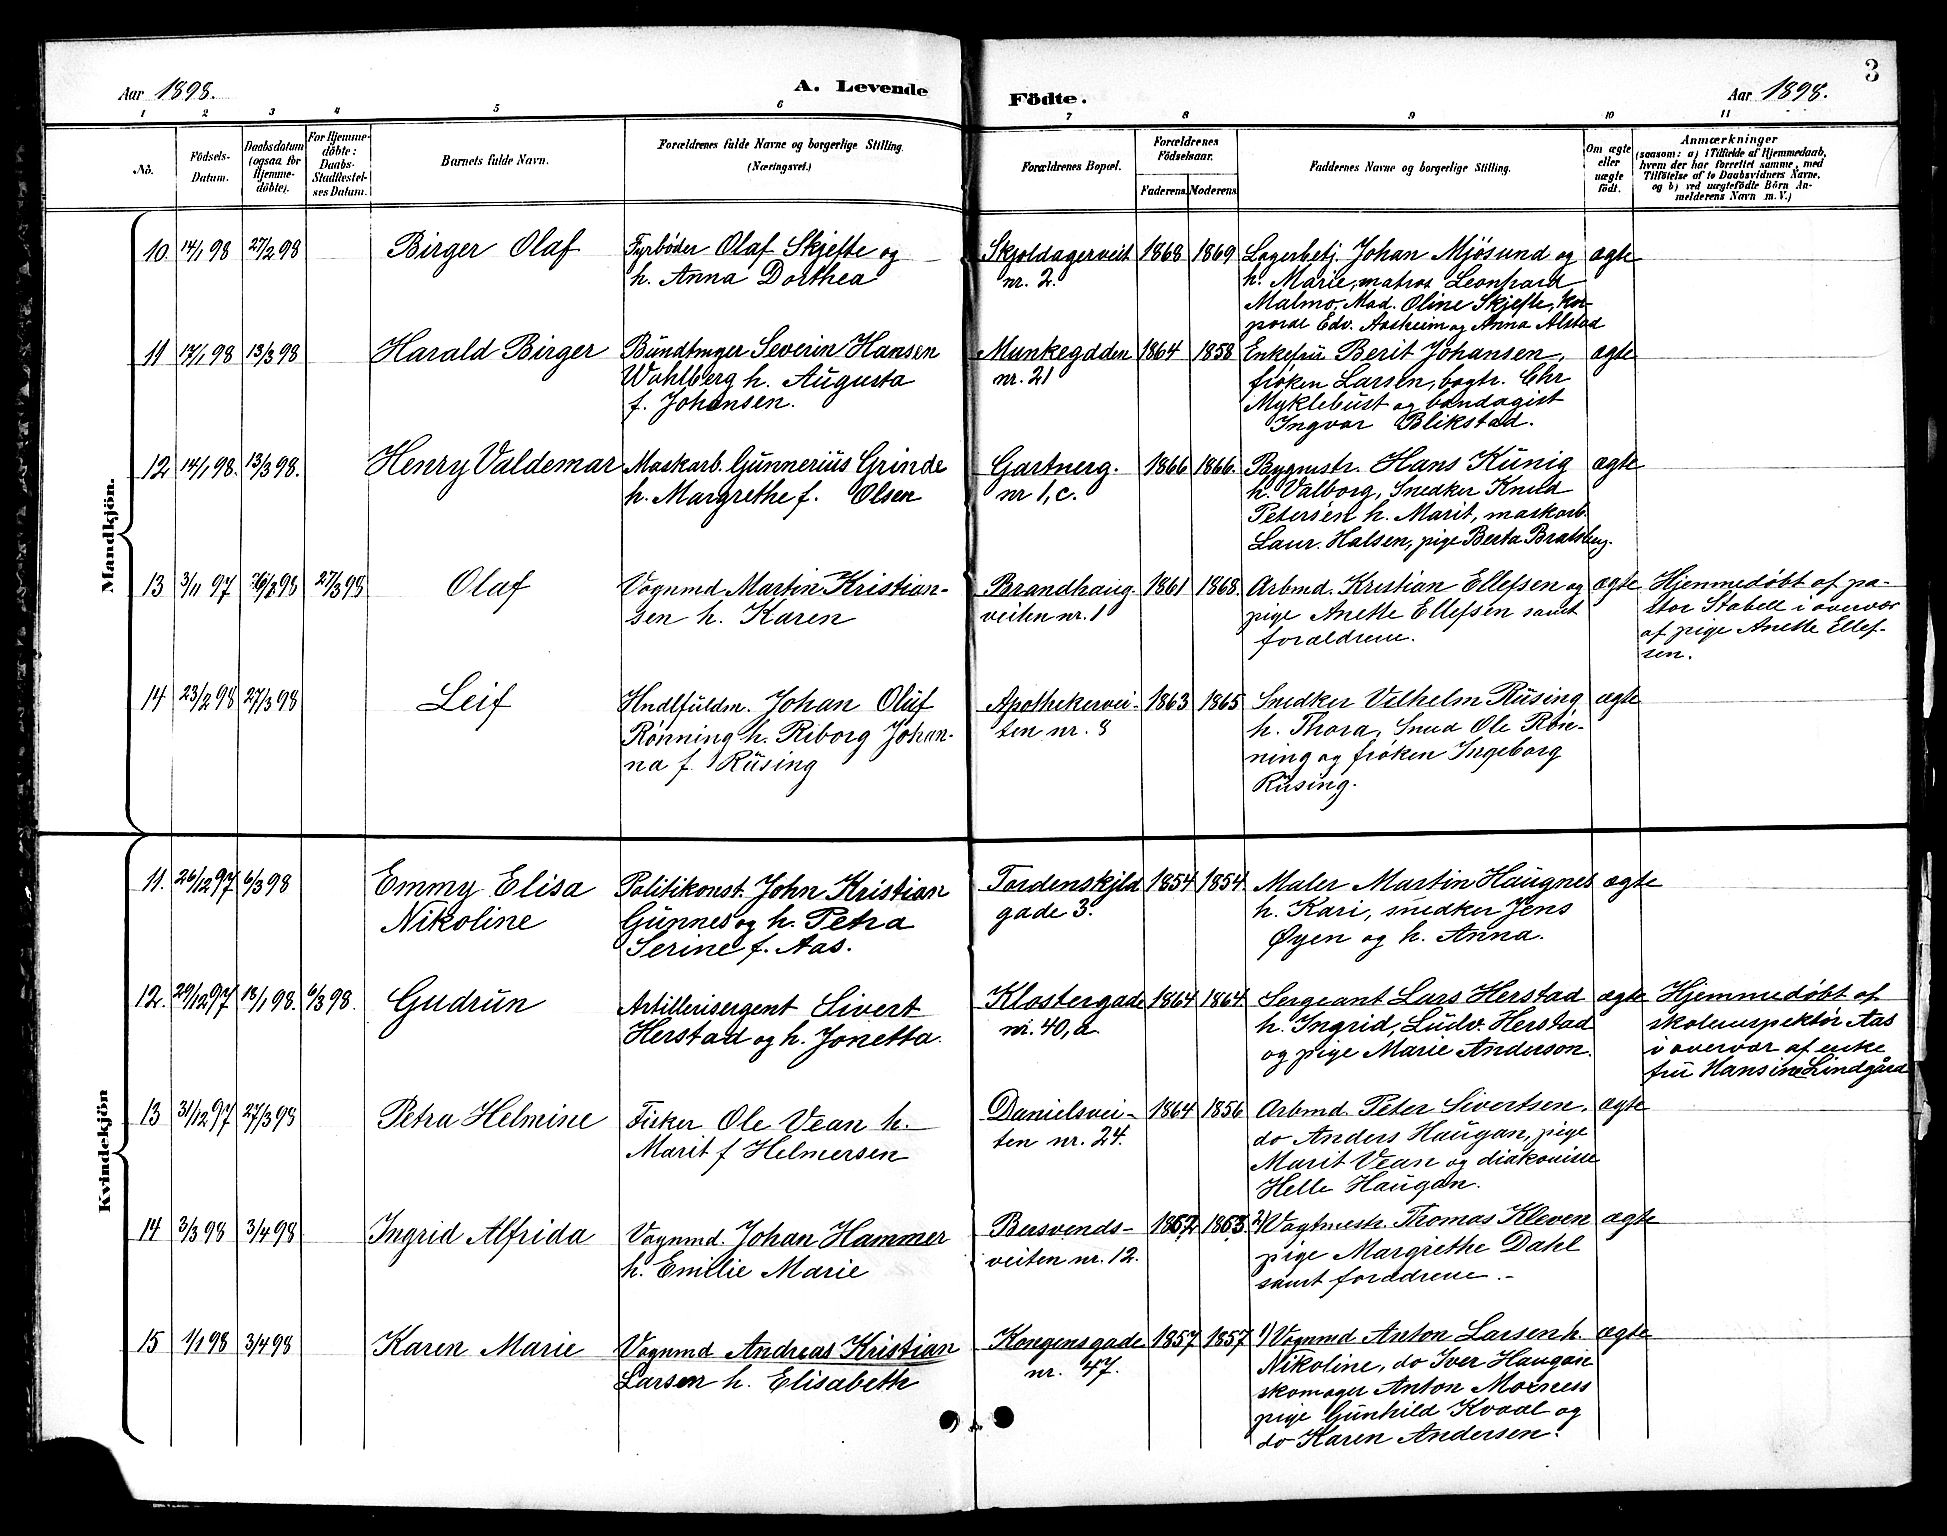 3
Aar 1898.
A. Levende
Födte.
Aar 1898.
1 2 3 4 5 6 7 8 9 10 11
No.
Födsels-
Datum.
Daabsdatum
(ogsaa for
Hjemme-
döbte).
For Hjemme-
döbte:
Daabs-
Stadfæstel-
ses Datum.
Barnets fulde Navn.
Forældrenes fulde Navne og borgerlige Stilling.
(Næringsvei.)
Forældrenes Bopæl.
Forældrenes
Födselsaar.
Faderens. Moderens.
Faddernes Navne og borgerlige Stilling.
Om ægte
eller
uægte
födt.
Anmærkninger
(saasom: a) i Tilfælde af Hjemmedaab,
hvem der har forrettet samme, med
Tilföielse af to Daabsvidners Navne,
og b) ved uægtefödte Börn An-
melderens Navn m. V.)
Mandkjön.
10. 14/1 98 27/2 98
Birger Olaf
Fyrbøder Olaf Skjefte og
h. Anna Dorthea
Skjoldagerveit
nr. 2.
1868 1869
Lagerbetj. Johan Mjösund og
h. Marie, matros Leonhard
Malmo, Mad. Oline Skjefte, kor-
poral Edv. Aasheim og Anna Alstad
ægte
11 17/1 98 13/3 98
Harald Birger
Bundtmger Severin Hansen
Wahlberg h. Augusta
f. Johansen.
Munkegdden
nr. 21
1864 1858
Enkefru Berit Johansen,
frøken Larsen, bogtr. Chr
Myklebust og bandagist
Ingvar Blikstad.
ægte
12 14/1 98. 13/3 98.
Henry Valdemar
Maskarb. Gunnerius Grinde
h. Margrethe f. Olsen
Gartnerg.
nr 1, c.
1866 1866.
Bygmstr. Hans Künig
h. Valborg, Snedker Knud
Petersen h. Marit, maskarb.
Laur. Halsen, pige Berta Bratsberg.
ægte
13 3/11 97 98 27/3 98
Olaf
Vognmd Martin Kristian-
sen h. Karen
Brandhaug-
veiten nr. 1
1861 1868.
Arbmd. Kristian Ellefsen og
pige Anette Ellefsen samt
forældrene.
ægte
Hjemmedøbt af pa-
stor Stabell i overvær
af pige Anette Ellef-
sen.
14 23/2 98 27/3 98
Leif
Hndlfuldm. Johan Oluf
Rønning h. Riborg Johan-
na f. Rüsing
Apothekervei-
ten nr. 8
1863 1865
Snedker Vilhelm Rüsing
h. Thora, Snud Ole Røn-
ning og frøken Ingeborg
Rüsing.
ægte
Kvindekjön
11. 26/12 97 6/3 98
Emmy Elisa
Nikoline
Politikonst. John Kristian
Gunnes og h. Petra
Serine f. Aas.
Tordenskjld
gade 3.
1854 1854
Maler Martin Haugnes
h. Kari, snedker Jens
Øyen og h. Anna.
ægte
12. 29/12 97 18/1 98. 6/3 98.
Gudrun
Artillerisergent Sivert
Herstad og h. Jonetta.
Klostergade
nr. 40, a
1864 1864
Sergeant Lars Herstad
h. Ingrid, Ludv. Herstad
og pige Marie Anderson.
ægte
Hjemmedøbt af
skoleinspektør Aas
i overvær af enke
fru Hansine Lindgård
13 31/12 97 27/3 98
Petra Helmine
Fisker Ole Vean h.
Marit f Helmersen
Danielsvei-
ten nr. 24.
1864 1856
Arbmd. Peter Sivertsen,
do Anders Haugan, pige
Marit Vean og diakonisse
Helle Haugan.
ægte
14 3/3 98 3/4 98
Ingrid Alfrida
Vognmd Johan Hammer
h. Emilie Marie
Bersvends-
veiten nr. 12.
1862 1863
2) Vagtmestr. Thomas Kleven
pige Margrethe Dahl
samt forældrene.-
ægte
15 1/1 98 3/4 98
Karen Marie
Vognmd Andreas Kristian
Larsen h. Elisabeth
Kongensgade
nr. 47.
1857 1857
1) Vognmd Anton Larsen h.
Nikoline, do Iver Haugan
skomager Anton Moxness
pige Gunhild Kvaal og
do Karen Andersen.
ægte